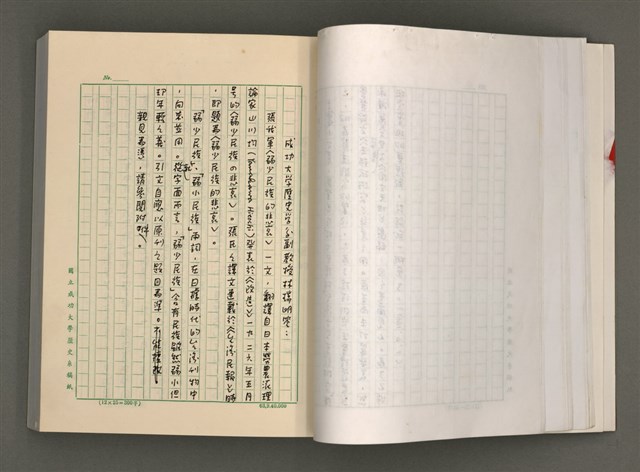 No.
成功大學歷史學系副教授林瑞明案：
張我軍《弱少民族的悲哀》一文，翻譯自日本勞農派理
論家山川均
發表於《改造》一九二六年五月
號的《弱少民族の悲哀》。張氏之譯文連載於《台灣民報》時
，即題為《弱少民族的悲哀》。
「弱少民族」、「弱小民族」兩詞，在日據時代的台灣刊物中
，向來並用。從字面而言，「弱少民族」含有民族雖然弱小但
年輕之義。引文自應以原刊之題目為準。
親見為憑，請參閱附件。
國立成功大學論文自稿紙
(12×25=300字)